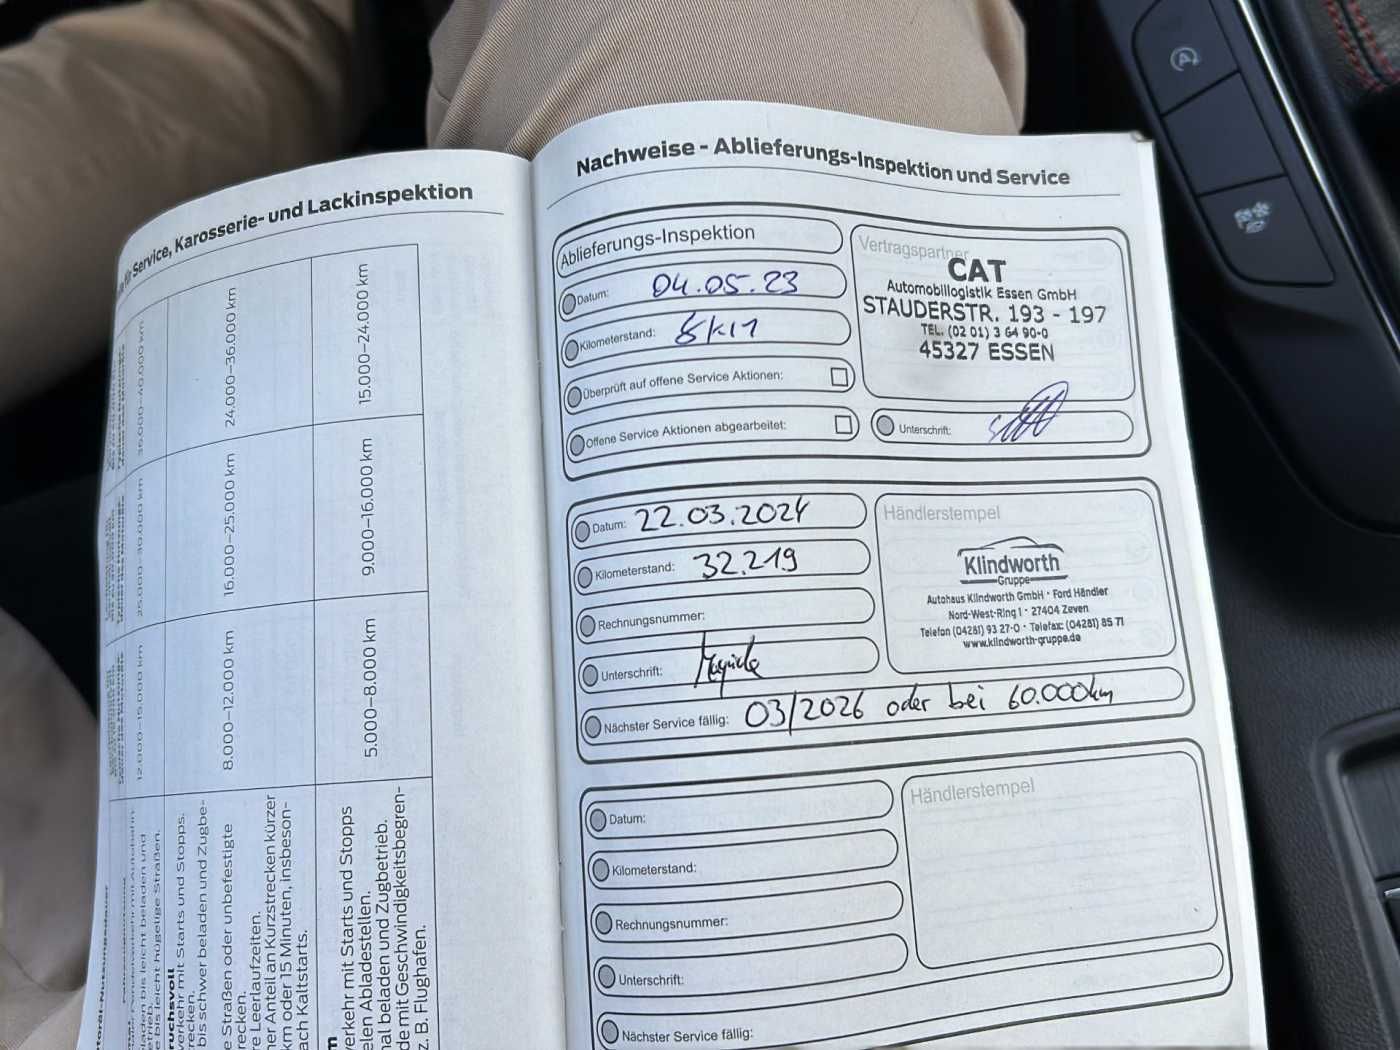 für Service, Karosserie- und Lackinspektion
24.000–36.000 km
15.000–24.000 km
25.000–30.000 km
16.000–25.000 km
9.000–16.000 km
12.000–15.000 km
8.000–12.000 km
5.000–8.000 km
laden bis leicht beladen und
e bis leicht hügelige Straßen.
ruchsvoll
verkehr mit Starts und Stopps.
recken.
bis schwer beladen und Zugbe-
e Straßen oder unbefestigte
recken.
e Leerlaufzeiten.
er Anteil an Kurzstrecken kürzer
km oder 15 Minuten, insbeson-
ach Kaltstarts.
m
verkehr mit Starts und Stopps
elen Abladestellen.
al beladen und Zugbetrieb.
de mit Geschwindigkeitsbegren-
z. B. Flughafen.
Nachweise - Ablieferungs-Inspektion und Service
Ablieferungs-Inspektion
Datum: 04.05.23
Kilometerstand:
Überprüft auf offene Service Aktionen:
Offene Service Aktionen abgearbeitet:
Vertragspartner
CAT
Automobillogistik Essen GmbH
STAUDERSTR. 193 - 197
TEL. (02 01) 3 64 90-0
45327 ESSEN
Unterschrift:
Datum: 22.03.2024
Kilometerstand: 32.219
Rechnungsnummer:
Unterschrift:
Nächster Service fällig: 03/2026 oder bei 60.000km
Händlerstempel
Klindworth
Gruppe
Autohaus Klindworth GmbH · Ford Händler
Nord-West-Ring 1 · 27404 Zeven
Telefon (04281) 93 27-0 · Telefax: (04281) 85 71
www.klindworth-gruppe.de
Datum:
Kilometerstand:
Rechnungsnummer:
Unterschrift:
Nächster Service fällig:
Händlerstempel